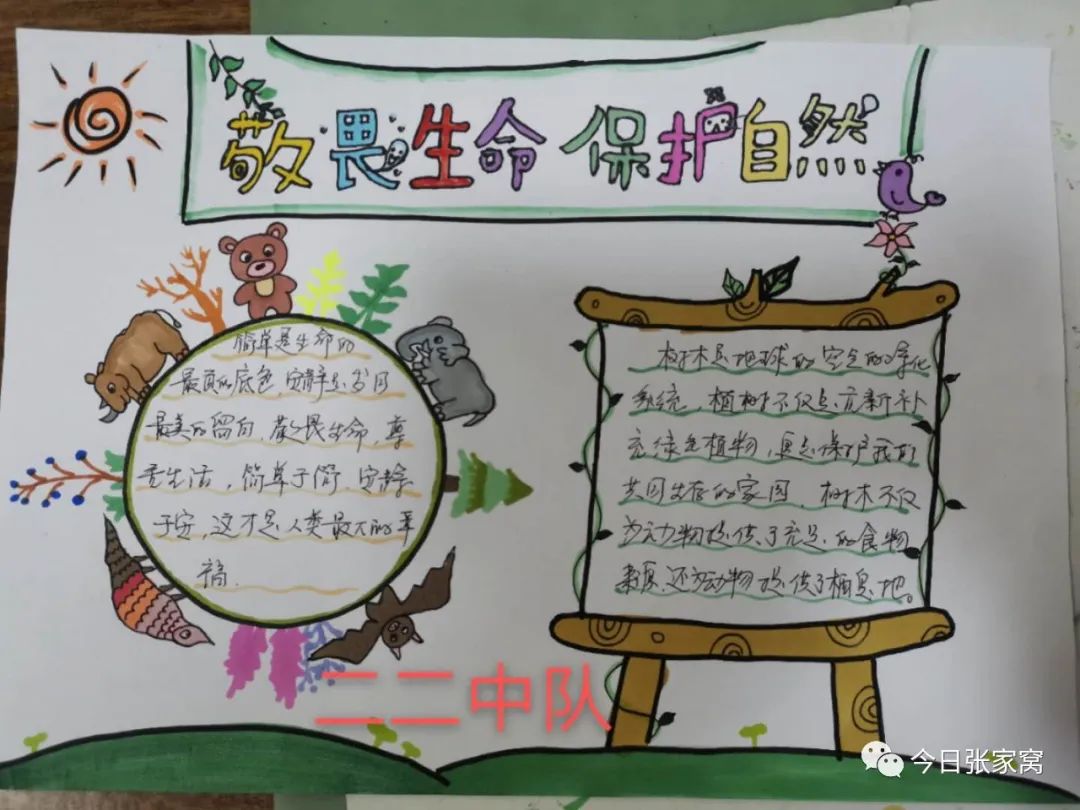 敬畏生命 保护自然
简单是生命的
最真的底色,安静是岁月
最美的留白,敬畏生命,尊
重生活,简单于简,安静
于安,这才是人类最大的幸
福.
树木是地球的空气的净化
系统,植树不仅是、充新补
充绿色植物,更是保护我们
共同生存的家园,树木不仅
为动物提供了充足的食物
来源,还为动物提供了栖息地。
二二中队
今日张家窝